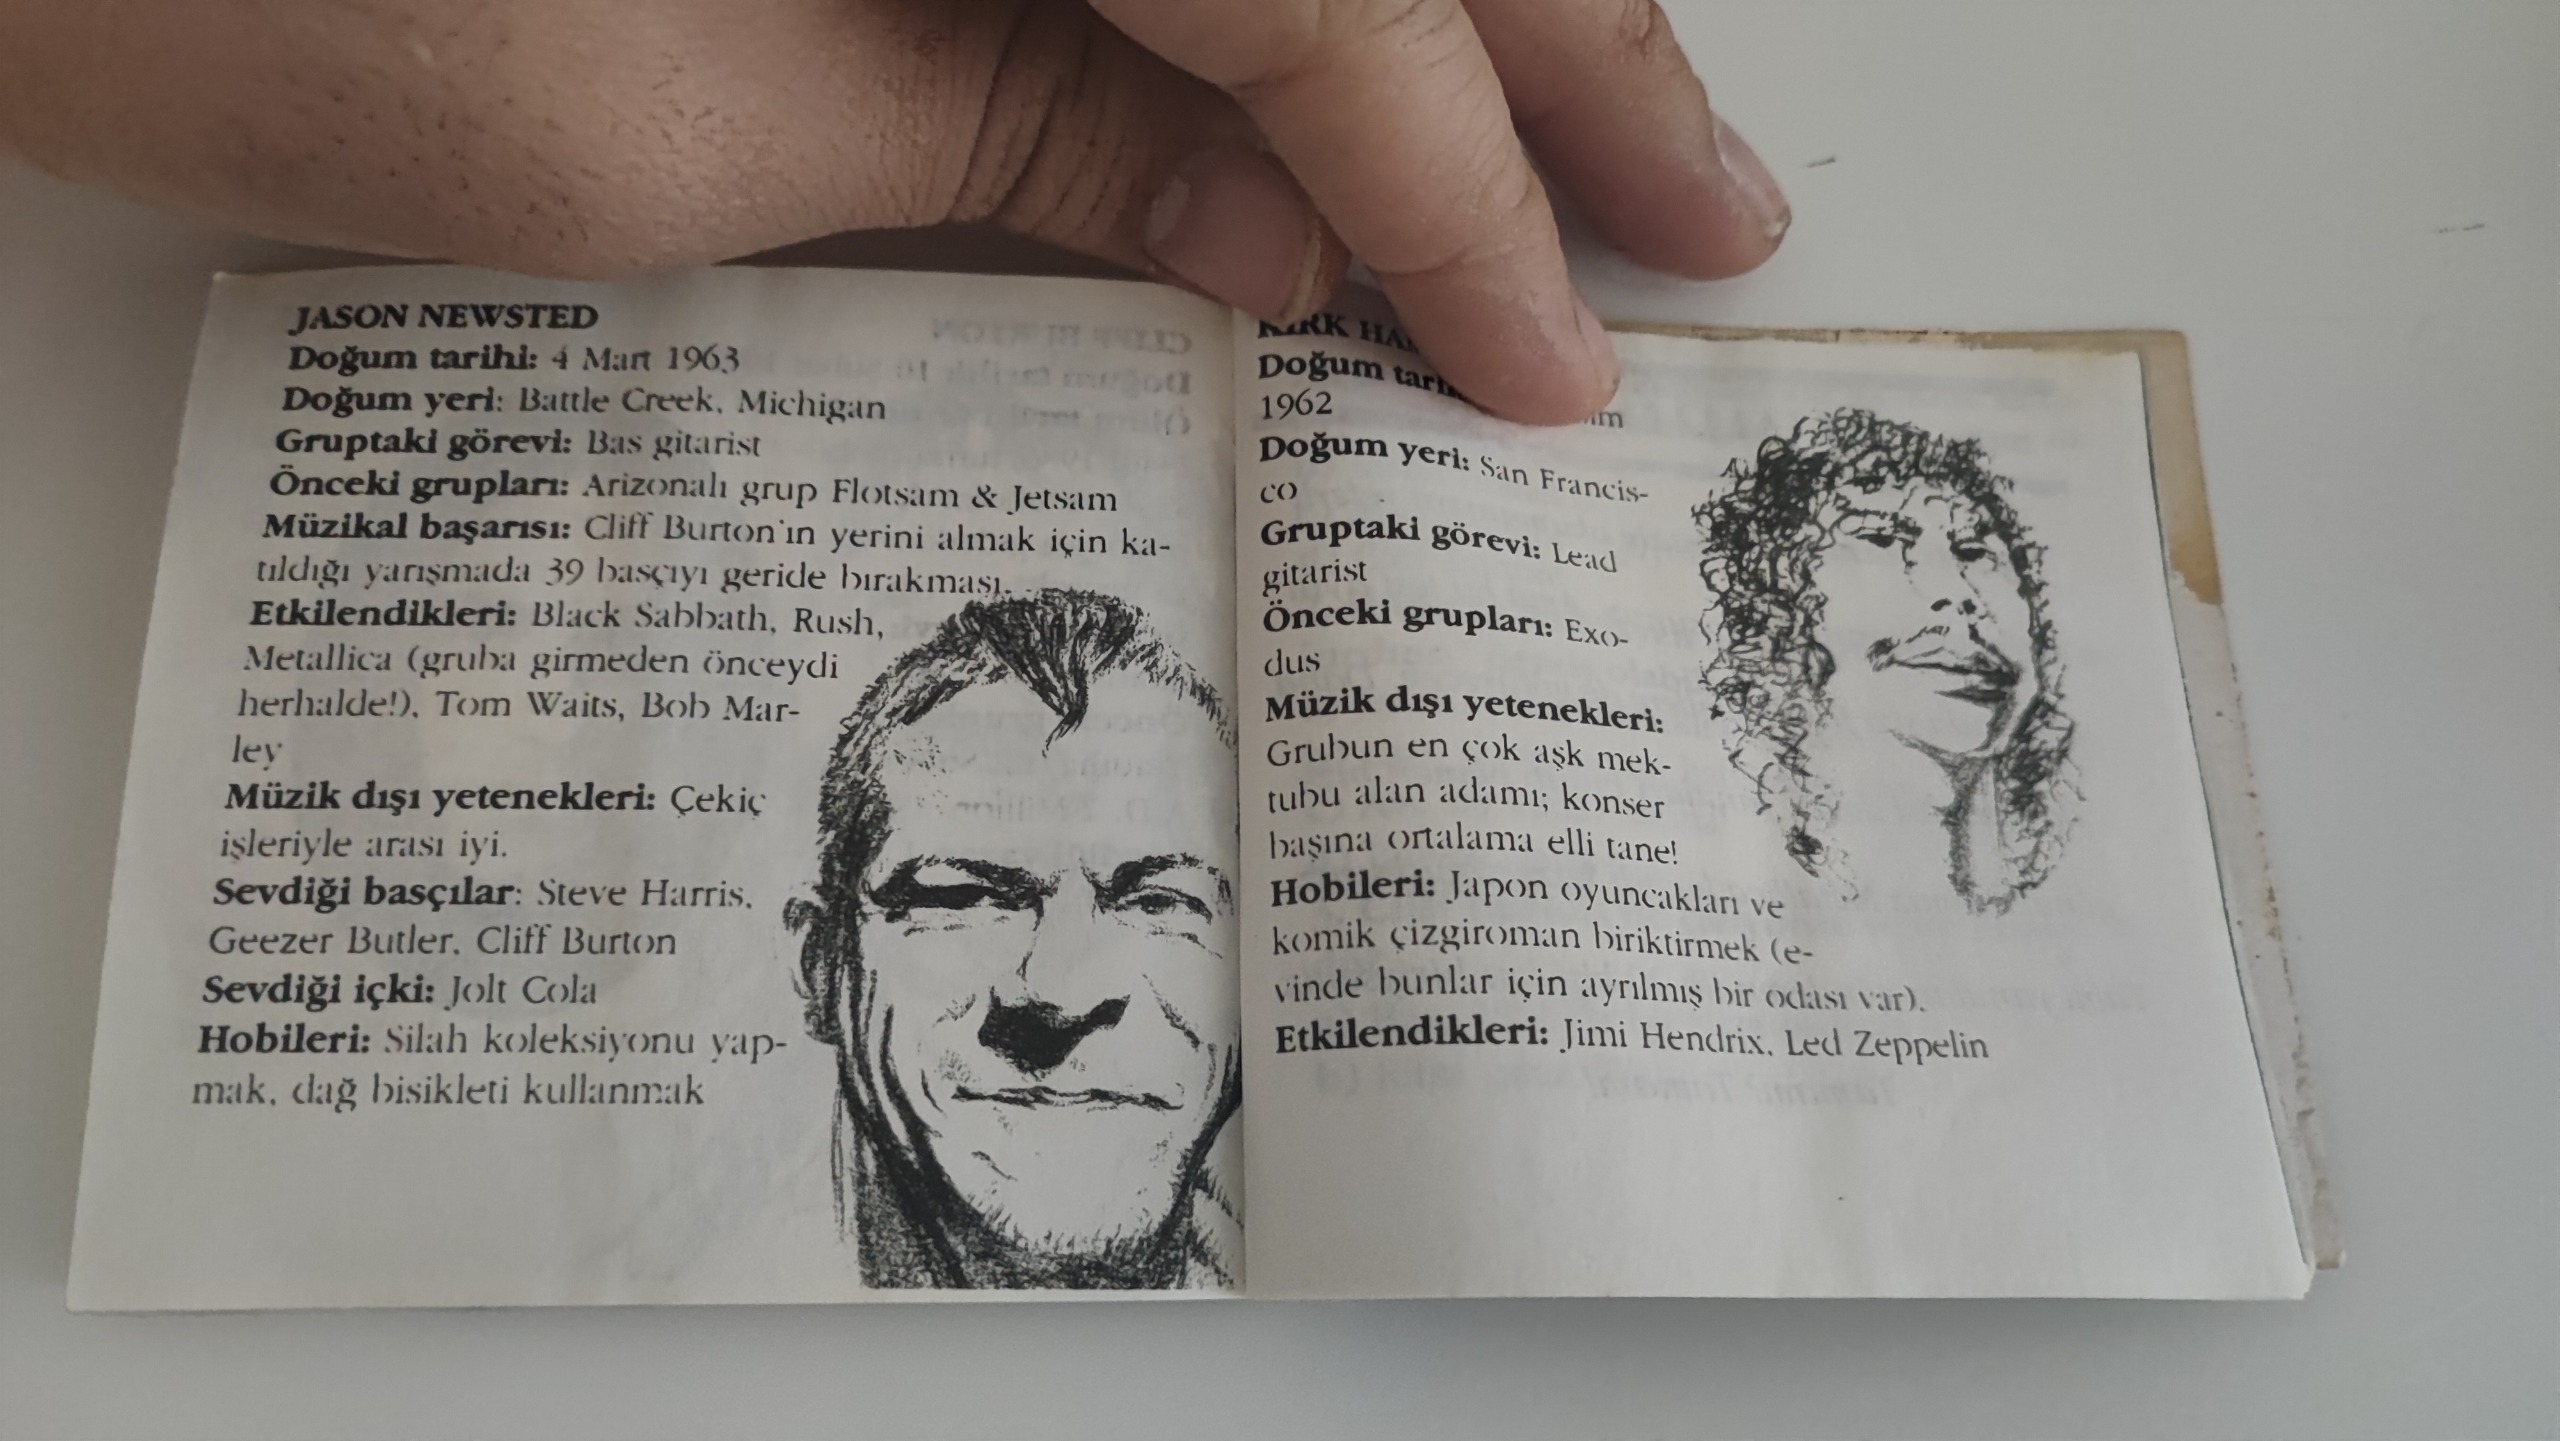 JASON NEWSTED
Doğum tarihi: 4 Mart 1963
Doğum yeri: Battle Creek, Michigan
Gruptaki görevi: Bas gitarist
Önceki grupları: Arizonalı grup Flotsam & Jetsam
Müzikal başarısı: Cliff Burton'ın yerini almak için ka-
tıldığı yarışmada 39 basçıyı geride bırakması.
Etkilendikleri: Black Sabbath, Rush,
Metallica (gruba girmeden önceydi
herhalde!), Tom Waits, Bob Mar-
ley
Müzik dışı yetenekleri: Çekiç
işleriyle arası iyi.
Sevdiği basçılar: Steve Harris,
Geezer Butler, Cliff Burton
Sevdiği içki: Jolt Cola
Hobileri: Silah koleksiyonu yap-
mak, dağ bisikleti kullanmak
KIRK
Doğum
1962
Doğum yeri: San Francis-
co
Gruptaki görevi: Lead
gitarist
Önceki grupları: Exo-
dus
Müzik dışı yetenekleri:
Grubun en çok aşk mek-
tubu alan adamı; konser
başına ortalama elli tane!
Hobileri: Japon oyuncakları ve
komik çizgiroman biriktirmek (e-
vinde bunlar için ayrılmış bir odası var).
Etkilendikleri: Jimi Hendrix, Led Zeppelin